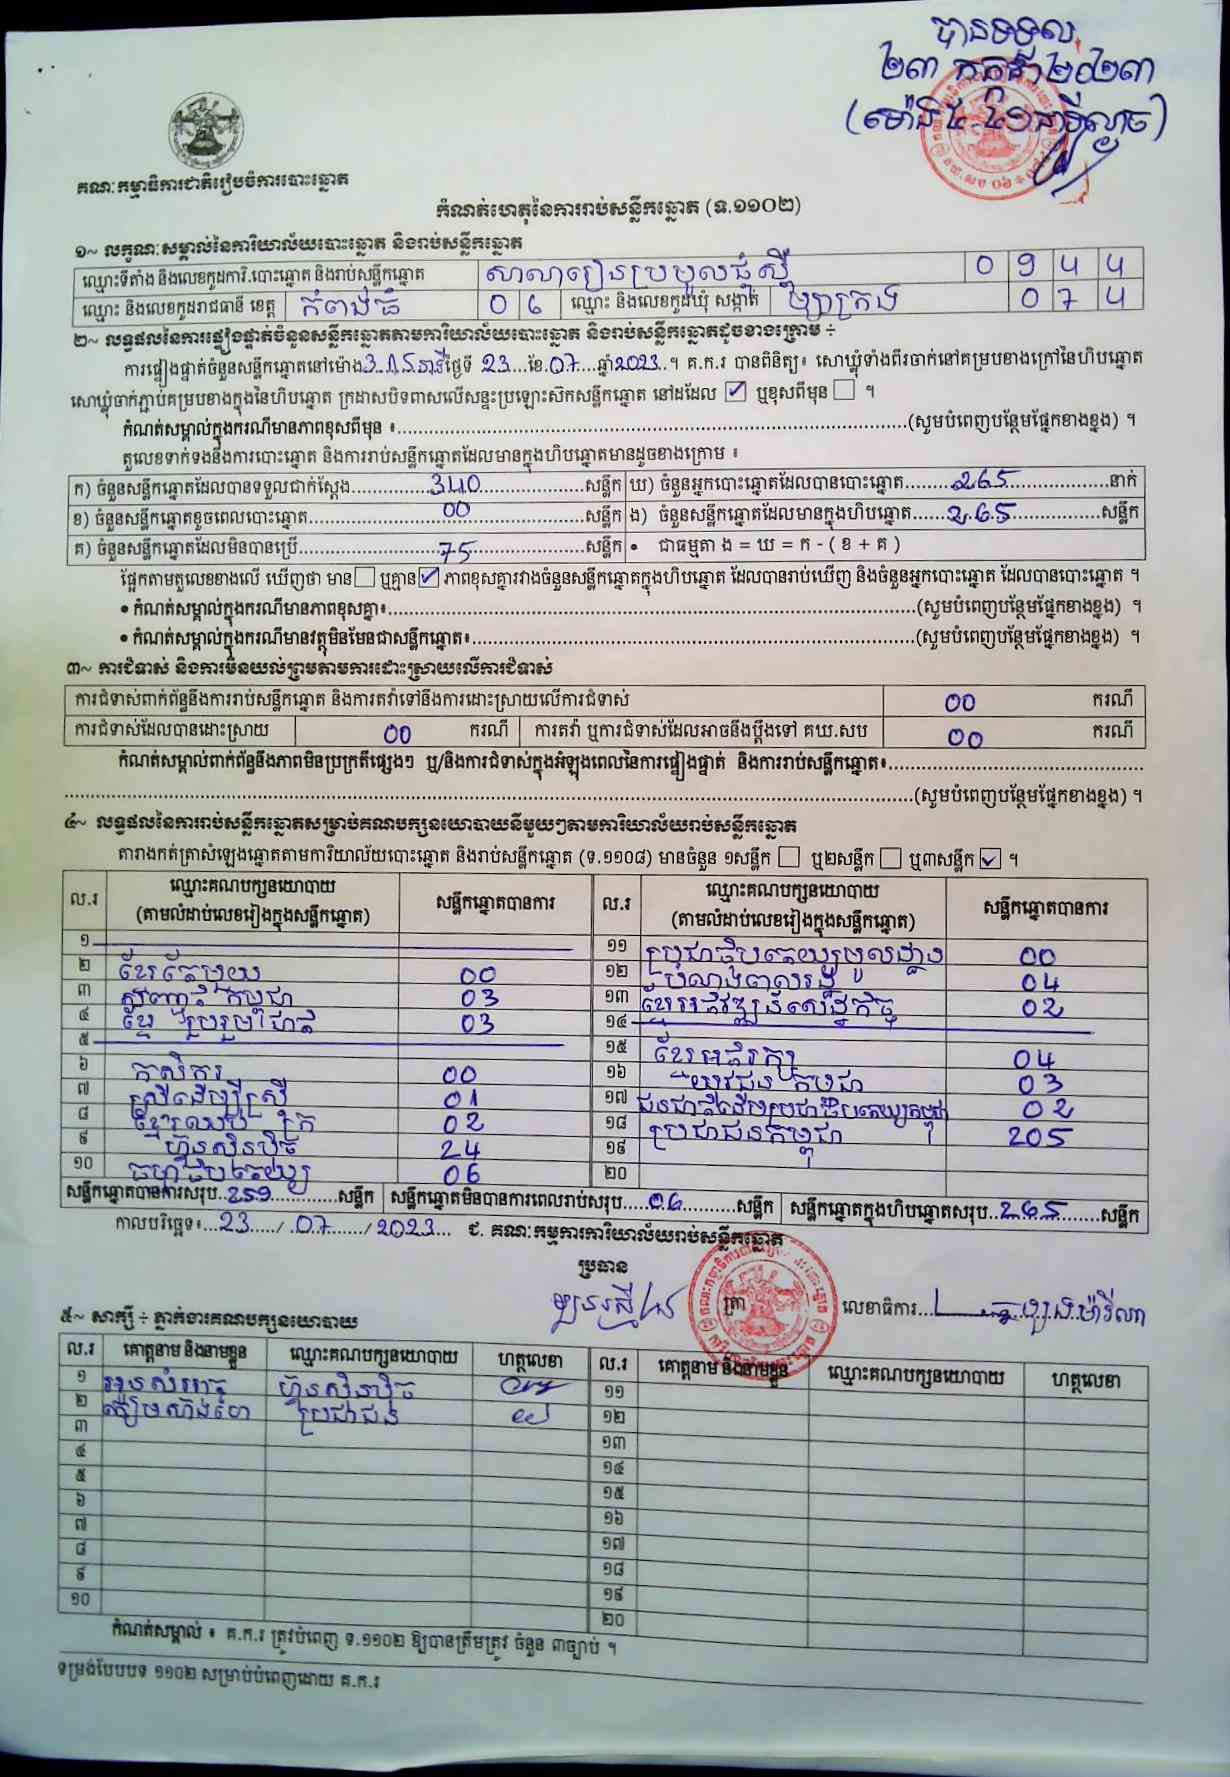 បានទទួល
២៣ កក្កដា ២០២៣
គណៈកម្មាធិការជាតិរៀបចំការបោះឆ្នោត
កំណត់ហេតុនៃការរាប់សន្លឹកឆ្នោត (ទ.១១០២)
១~ លក្ខណៈសម្គាល់នៃការិយាល័យបោះឆ្នោត និងរាប់សន្លឹកឆ្នោត
ឈ្មោះទីតាំង និងលេខកូដការិ.បោះឆ្នោត និងរាប់សន្លឹកឆ្នោត សាលារៀនប្រមូលផ្ដុំស្មី 0 9 4 4
ឈ្មោះ និងលេខកូដរាជធានី ខេត្ត កំពង់ធំ 0 6 ឈ្មោះ និងលេខកូដឃុំ សង្កាត់ 0 7 4
២~ លទ្ធផលនៃការផ្ទៀងផ្ទាត់ចំនួនសន្លឹកឆ្នោតតាមការិយាល័យបោះឆ្នោត និងរាប់សន្លឹកឆ្នោតដូចខាងក្រោម ÷
ការផ្ទៀងផ្ទាត់ចំនួនសន្លឹកឆ្នោតនៅម៉ោង 3 ៈ 15 នាទី ថ្ងៃទី 23 ខែ 07 ឆ្នាំ 2023 ។ គ.ក.រ បានពិនិត្យ៖ សោឃ្លុំទាំងពីរចាក់នៅគម្របខាងក្រៅនៃហិបឆ្នោត
សោឃ្លុំចាក់ភ្ជាប់គម្របខាងក្នុងនៃហិបឆ្នោត ក្រដាសបិទពាសលើសន្ទះប្រឡោះស៊កសន្លឹកឆ្នោត នៅដដែល ☑ ឬខុសពីមុន ☐ ។
កំណត់សម្គាល់ក្នុងករណីមានភាពខុសពីមុន ៖ (សូមបំពេញបន្ថែមផ្នែកខាងខ្នង) ។
តួលេខទាក់ទងនឹងការបោះឆ្នោត និងការរាប់សន្លឹកឆ្នោតដែលមានក្នុងហិបឆ្នោតមានដូចខាងក្រោម ៖
ក) ចំនួនសន្លឹកឆ្នោតដែលបានទទួលជាក់ស្តែង 340 សន្លឹក ឃ) ចំនួនអ្នកបោះឆ្នោតដែលបានបោះឆ្នោត 265 នាក់
ខ) ចំនួនសន្លឹកឆ្នោតខូចពេលបោះឆ្នោត 00 សន្លឹក ង) ចំនួនសន្លឹកឆ្នោតដែលមានក្នុងហិបឆ្នោត 265 សន្លឹក
គ) ចំនួនសន្លឹកឆ្នោតដែលមិនបានប្រើ 75 សន្លឹក • ជាធម្មតា ង = ឃ = ក - ( ខ + គ )
ផ្អែកតាមតួលេខខាងលើ ឃើញថា មាន ☐ ឬគ្មាន ☑ ភាពខុសគ្នារវាងចំនួនសន្លឹកឆ្នោតក្នុងហិបឆ្នោត ដែលបានរាប់ឃើញ និងចំនួនអ្នកបោះឆ្នោត ដែលបានបោះឆ្នោត ។
• កំណត់សម្គាល់ក្នុងករណីមានភាពខុសគ្នា៖ (សូមបំពេញបន្ថែមផ្នែកខាងខ្នង) ។
• កំណត់សម្គាល់ក្នុងករណីមានវត្ថុមិនមែនជាសន្លឹកឆ្នោត៖ (សូមបំពេញបន្ថែមផ្នែកខាងខ្នង) ។
៣~ ការជំទាស់ និងការមិនយល់ព្រមតាមការដោះស្រាយលើការជំទាស់
ការជំទាស់ពាក់ព័ន្ធនឹងការរាប់សន្លឹកឆ្នោត និងការតវ៉ាទៅនឹងការដោះស្រាយលើការជំទាស់ 00 ករណី
ការជំទាស់ដែលបានដោះស្រាយ 00 ករណី ការតវ៉ា ឬការជំទាស់ដែលអាចនឹងប្តឹងទៅ គឃ.សប 00 ករណី
កំណត់សម្គាល់ពាក់ព័ន្ធនឹងភាពមិនប្រក្រតីផ្សេងៗ ឬ/និងការជំទាស់ក្នុងអំឡុងពេលនៃការផ្ទៀងផ្ទាត់ និងការរាប់សន្លឹកឆ្នោត៖
(សូមបំពេញបន្ថែមផ្នែកខាងខ្នង) ។
៤~ លទ្ធផលនៃការរាប់សន្លឹកឆ្នោតសម្រាប់គណបក្សនយោបាយនីមួយៗតាមការិយាល័យរាប់សន្លឹកឆ្នោត
តារាងកត់ត្រាសំឡេងឆ្នោតតាមការិយាល័យបោះឆ្នោត និងរាប់សន្លឹកឆ្នោត (ទ.១១០៨) មានចំនួន ១សន្លឹក ☐ ឬ២សន្លឹក ☐ ឬ៣សន្លឹក ☑ ។
ល.រ ឈ្មោះគណបក្សនយោបាយ (តាមលំដាប់លេខរៀងក្នុងសន្លឹកឆ្នោត) សន្លឹកឆ្នោតបានការ ល.រ ឈ្មោះគណបក្សនយោបាយ (តាមលំដាប់លេខរៀងក្នុងសន្លឹកឆ្នោត) សន្លឹកឆ្នោតបានការ
១ ១១ ប្រជាធិបតេយ្យមូលដ្ឋាន 00
២ ខ្មែរតែមួយ 00 ១២ បំណាងពលរដ្ឋ 04
៣ សញ្ជាតិកម្ពុជា 03 ១៣ ខ្មែរអភិវឌ្ឍន៍សេដ្ឋកិច្ច 02
៤ ខ្មែររួបរួមជាតិ 03 ១៤
៥ ១៥ ខ្មែរអភិរក្ស 04
៦ កសិករ 00 ១៦ យុវជនកម្ពុជា 03
៧ ស្រីដើម្បីស្រី 01 ១៧ ជនជាតិដើមប្រជាធិបតេយ្យកម្ពុជា 02
៨ ខ្មែរឈប់ក្រ 02 ១៨ ប្រជាជនកម្ពុជា 205
៩ ហ៊្វុនស៊ិនប៉ិច 24 ១៩
១០ ធម្មាធិបតេយ្យ 06 ២០
សន្លឹកឆ្នោតបានការសរុប 259 សន្លឹក សន្លឹកឆ្នោតមិនបានការពេលរាប់សរុប 06 សន្លឹក សន្លឹកឆ្នោតក្នុងហិបឆ្នោតសរុប 265 សន្លឹក
កាលបរិច្ឆេទ៖ 23 / 07 / 2023 ជ. គណៈកម្មការការិយាល័យរាប់សន្លឹកឆ្នោត
ប្រធាន
ត្រា លេខាធិការ
៥~ សាក្សី ÷ ភ្នាក់ងារគណបក្សនយោបាយ
ល.រ គោត្តនាម និងនាមខ្លួន ឈ្មោះគណបក្សនយោបាយ ហត្ថលេខា ល.រ គោត្តនាម និងនាមខ្លួន ឈ្មោះគណបក្សនយោបាយ ហត្ថលេខា
១ ហ៊្វុនស៊ិនប៉ិច ១១
២ ប្រជាជន ១២
៣ ១៣
៤ ១៤
៥ ១៥
៦ ១៦
៧ ១៧
៨ ១៨
៩ ១៩
១០ ២០
កំណត់សម្គាល់ ៖ គ.ក.រ ត្រូវបំពេញ ទ.១១០២ ឱ្យបានត្រឹមត្រូវ ចំនួន ៣ច្បាប់ ។
ទម្រង់បែបបទ ១១០២ សម្រាប់បំពេញដោយ គ.ក.រ